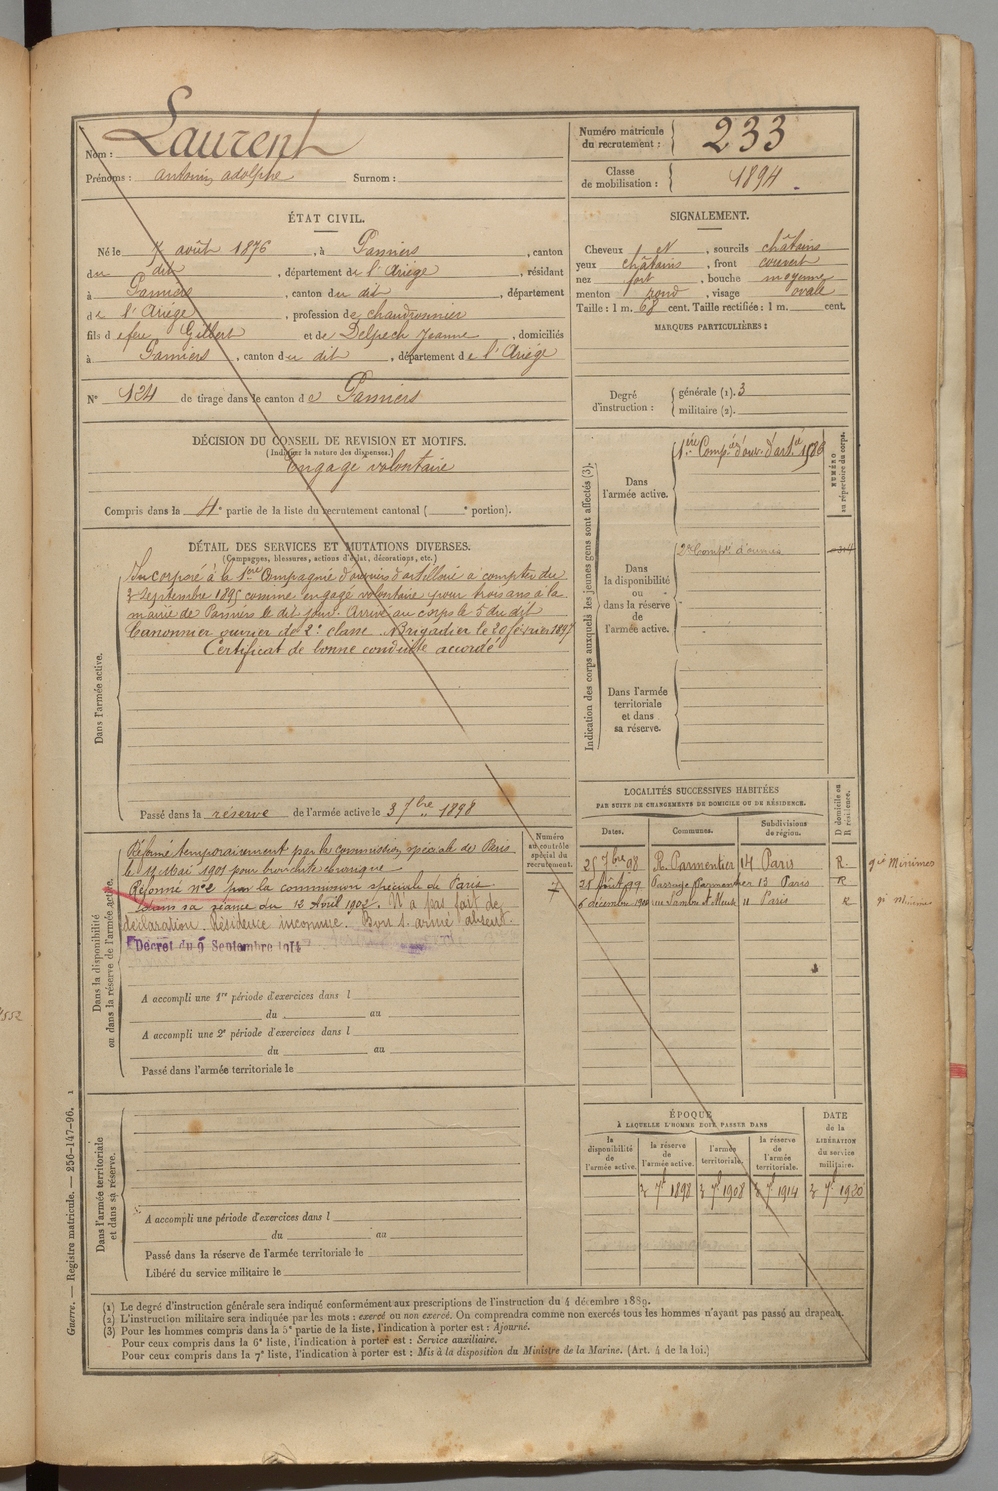 Nom : Laurent
Prénoms : antonin adolphe Surnom :
Numéro matricule du recrutement : 233
Classe de mobilisation : 1894
ÉTAT CIVIL.
Né le 7 août 1876, à Pamiers, canton
du dit, département de l'Ariège, résidant
à Pamiers, canton du dit, département
de l'Ariège, profession de chaudronnier
fils d efeu Gilbert et de Delpech Jeanne, domiciliés
à Pamiers, canton du dit, département de l'Ariège
N° 124 de tirage dans le canton de Pamiers
SIGNALEMENT.
Cheveux N, sourcils châtains
yeux châtains, front couvert
nez fort, bouche moyenne
menton rond, visage ovale
Taille : 1 m. 68 cent. Taille rectifiée : 1 m. cent.
MARQUES PARTICULIÈRES :
Degré d'instruction : générale (1). 3
militaire (2).
DÉCISION DU CONSEIL DE REVISION ET MOTIFS.
(Indiquer la nature des dispenses.)
Engagé volontaire
Compris dans la 4e partie de la liste du recrutement cantonal ( e portion).
DÉTAIL DES SERVICES ET MUTATIONS DIVERSES.
(Campagnes, blessures, actions d'éclat, décorations, etc.)
Dans l'armée active.
Incorporé à la 1ère Compagnie d'ouvriers d'artillerie à compter du
3 Septembre 1895 comme engagé volontaire pour trois ans à la
mairie de Pamiers le dit jour. Arrivé au corps le 5 du dit
Canonnier ouvrier de 2e classe. Brigadier le 20 février 1897
Certificat de bonne conduite accordé
Passé dans la réserve de l'armée active le 3 7bre 1898
Indication des corps auxquels les jeunes gens sont affectés (3).
NUMÉRO au répertoire du corps.
Dans l'armée active.
1ère Comp. d'ouv. d'art.
Dans la disponibilité ou dans la réserve de l'armée active.
2e Comp. d'ouvriers
Dans l'armée territoriale et dans sa réserve.
Dans la disponibilité ou dans la réserve de l'armée active.
Numéro au contrôle spécial du recrutement.
Réformé temporairement par la commission spéciale de Paris
le 19 Mai 1901 pour bronchite chronique
Réformé n°2 par la commission spéciale de Paris
dans sa séance du 12 Avril 1902. N'a pas fait de
déclaration. Résidence inconnue. Bon s. armé absent.
Décret du 9 Septembre 1914
A accompli une 1re période d'exercices dans l
du au
A accompli une 2e période d'exercices dans l
du au
Passé dans l'armée territoriale le
LOCALITÉS SUCCESSIVES HABITÉES
PAR SUITE DE CHANGEMENTS DE DOMICILE OU DE RÉSIDENCE.
D domicile ou R résidence.
Dates. Communes. Subdivisions de région.
25 7bre 98 R. Parmentier 14 Paris R. Minimes
21 99 Passage Parmentier 13 Paris R
6 décembre 1900 rue Sambre et Meuse 11 Paris R Minimes
Dans l'armée territoriale et dans sa réserve.
A accompli une période d'exercices dans l
du au
Passé dans la réserve de l'armée territoriale le
Libéré du service militaire le
ÉPOQUE
À LAQUELLE L'HOMME DOIT PASSER DANS
DATE de la LIBÉRATION du service militaire.
la disponibilité de l'armée active.
la réserve de l'armée active.
l'armée territoriale.
la réserve de l'armée territoriale.
3 7e 1898 3 7e 1908 3 7e 1914 3 7e 1920
(1) Le degré d'instruction générale sera indiqué conformément aux prescriptions de l'instruction du 4 décembre 1889.
(2) L'instruction militaire sera indiquée par les mots : exercé ou non exercé. On comprendra comme non exercés tous les hommes n'ayant pas passé au drapeau.
(3) Pour les hommes compris dans la 5e partie de la liste, l'indication à porter est : Ajourné.
Pour ceux compris dans la 6e liste, l'indication à porter est : Service auxiliaire.
Pour ceux compris dans la 7e liste, l'indication à porter est : Mis à la disposition du Ministre de la Marine. (Art. 4 de la loi.)
Guerre. — Registre matricule. — 256-147-96. 1